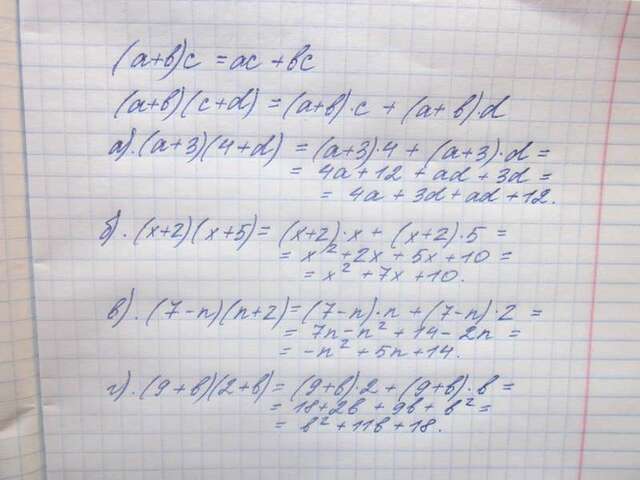 (a+b)c = ac + bc
(a+b)(c+d) = (a+b)·c + (a+b)·d
а).(a+3)(4+d) = (a+3)·4 + (a+3)·d =
= 4a+12 + ad + 3d =
= 4a + 3d + ad + 12.
б).(x+2)(x+5) = (x+2)·x + (x+2)·5 =
= x² + 2x + 5x + 10 =
= x² + 7x + 10.
в).(7-n)(n+2) = (7-n)·n + (7-n)·2 =
= 7n - n² + 14 - 2n =
= -n² + 5n + 14.
г).(9+b)(2+b) = (9+b)·2 + (9+b)·b =
= 18 + 2b + 9b + b² =
= b² + 11b + 18.